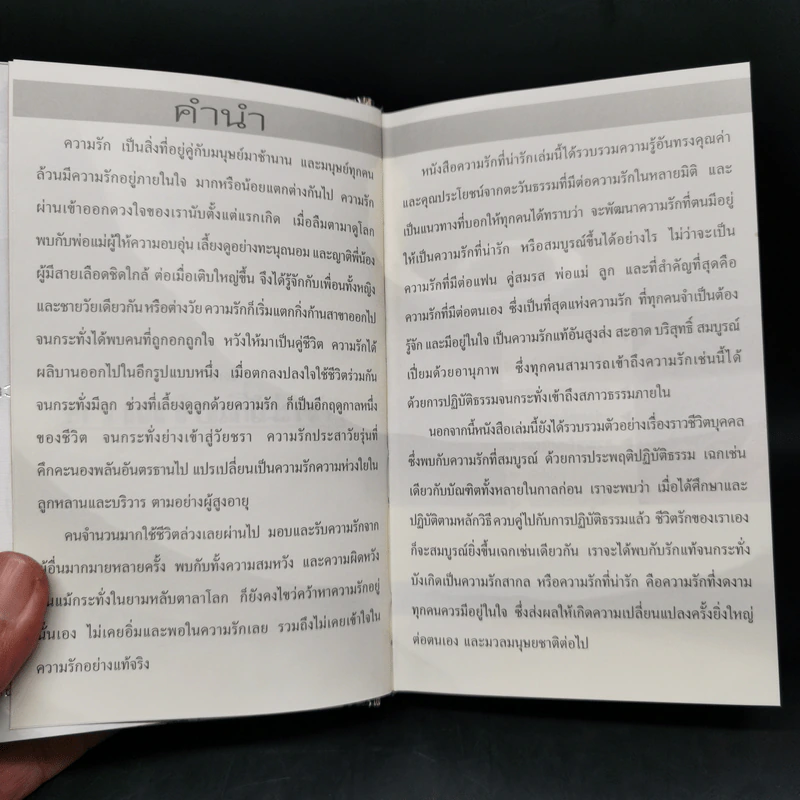 คำนำ
ความรัก เป็นสิ่งที่อยู่คู่กับมนุษย์มาช้านาน และมนุษย์ทุกคน
ล้วนมีความรักอยู่ภายในใจ มากหรือน้อยแตกต่างกันไป ความรัก
ผ่านเข้าออกดวงใจของเรานับตั้งแต่แรกเกิด เมื่อลืมตามาดูโลก
พบกับพ่อแม่ผู้ให้ความอบอุ่น เลี้ยงดูอย่างทะนุถนอม และญาติพี่น้อง
ผู้มีสายเลือดชิดใกล้ ต่อเมื่อเติบใหญ่ขึ้น จึงได้รู้จักกับเพื่อนทั้งหญิง
และชายวัยเดียวกัน หรือต่างวัย ความรักก็เริ่มแตกกิ่งก้านสาขาออกไป
จนกระทั่งได้พบคนที่ถูกอกถูกใจ หวังให้มาเป็นคู่ชีวิต ความรักได้
ผลิบานออกไปในอีกรูปแบบหนึ่ง เมื่อตกลงปลงใจใช้ชีวิตร่วมกัน
จนกระทั่งมีลูก ช่วงที่เลี้ยงดูลูกด้วยความรัก ก็เป็นอีกฤดูกาลหนึ่ง
ของชีวิต จนกระทั่งย่างเข้าสู่วัยชรา ความรักประสาวัยรุ่นที่
คึกคะนองพลันอันตรธานไป แปรเปลี่ยนเป็นความรักความห่วงใยใน
ลูกหลานและบริวาร ตามอย่างผู้สูงอายุ
คนจำนวนมากใช้ชีวิตล่วงเลยผ่านไป มอบและรับความรักจาก
ผู้อื่นมากมายหลายครั้ง พบกับทั้งความสมหวัง และความผิดหวัง
แม้กระทั่งในยามหลับตาลาโลก ก็ยังคงไขว่คว้าหาความรักอยู่
นั่นเอง ไม่เคยอิ่มและพอในความรักเลย รวมถึงไม่เคยเข้าใจใน
ความรักอย่างแท้จริง
หนังสือความรักที่น่ารักเล่มนี้ได้รวบรวมความรู้อันทรงคุณค่า
และคุณประโยชน์จากตะวันธรรมที่มีต่อความรักในหลายมิติ และ
เป็นแนวทางที่บอกให้ทุกคนได้ทราบว่า จะพัฒนาความรักที่ตนมีอยู่
ให้เป็นความรักที่น่ารัก หรือสมบูรณ์ขึ้นได้อย่างไร ไม่ว่าจะเป็น
ความรักที่มีต่อแฟน คู่สมรส พ่อแม่ ลูก และที่สำคัญที่สุดคือ
ความรักที่มีต่อตนเอง ซึ่งเป็นที่สุดแห่งความรัก ที่ทุกคนจำเป็นต้อง
รู้จัก และมีอยู่ในใจ เป็นความรักแท้อันสูงส่ง สะอาด บริสุทธิ์ สมบูรณ์
เปี่ยมด้วยอานุภาพ ซึ่งทุกคนสามารถเข้าถึงความรักเช่นนี้ได้
ด้วยการปฏิบัติธรรมจนกระทั่งเข้าถึงสภาวธรรมภายใน
นอกจากนี้หนังสือเล่มนี้ยังได้รวบรวมตัวอย่างเรื่องราวชีวิตบุคคล
ซึ่งพบกับความรักที่สมบูรณ์ ด้วยการประพฤติปฏิบัติธรรม เฉกเช่น
เดียวกับบัณฑิตทั้งหลายในกาลก่อน เราจะพบว่า เมื่อได้ศึกษาและ
ปฏิบัติตามหลักวิธีควบคู่ไปกับการปฏิบัติธรรมแล้ว ชีวิตรักของเราเอง
ก็จะสมบูรณ์ยิ่งขึ้นเฉกเช่นเดียวกัน เราจะได้พบกับรักแท้จนกระทั่ง
บังเกิดเป็นความรักสากล หรือความรักที่น่ารัก คือความรักที่งดงาม
ทุกคนควรมีอยู่ในใจ ซึ่งส่งผลให้เกิดความเปลี่ยนแปลงครั้งยิ่งใหญ่
ต่อตนเอง และมวลมนุษยชาติต่อไป